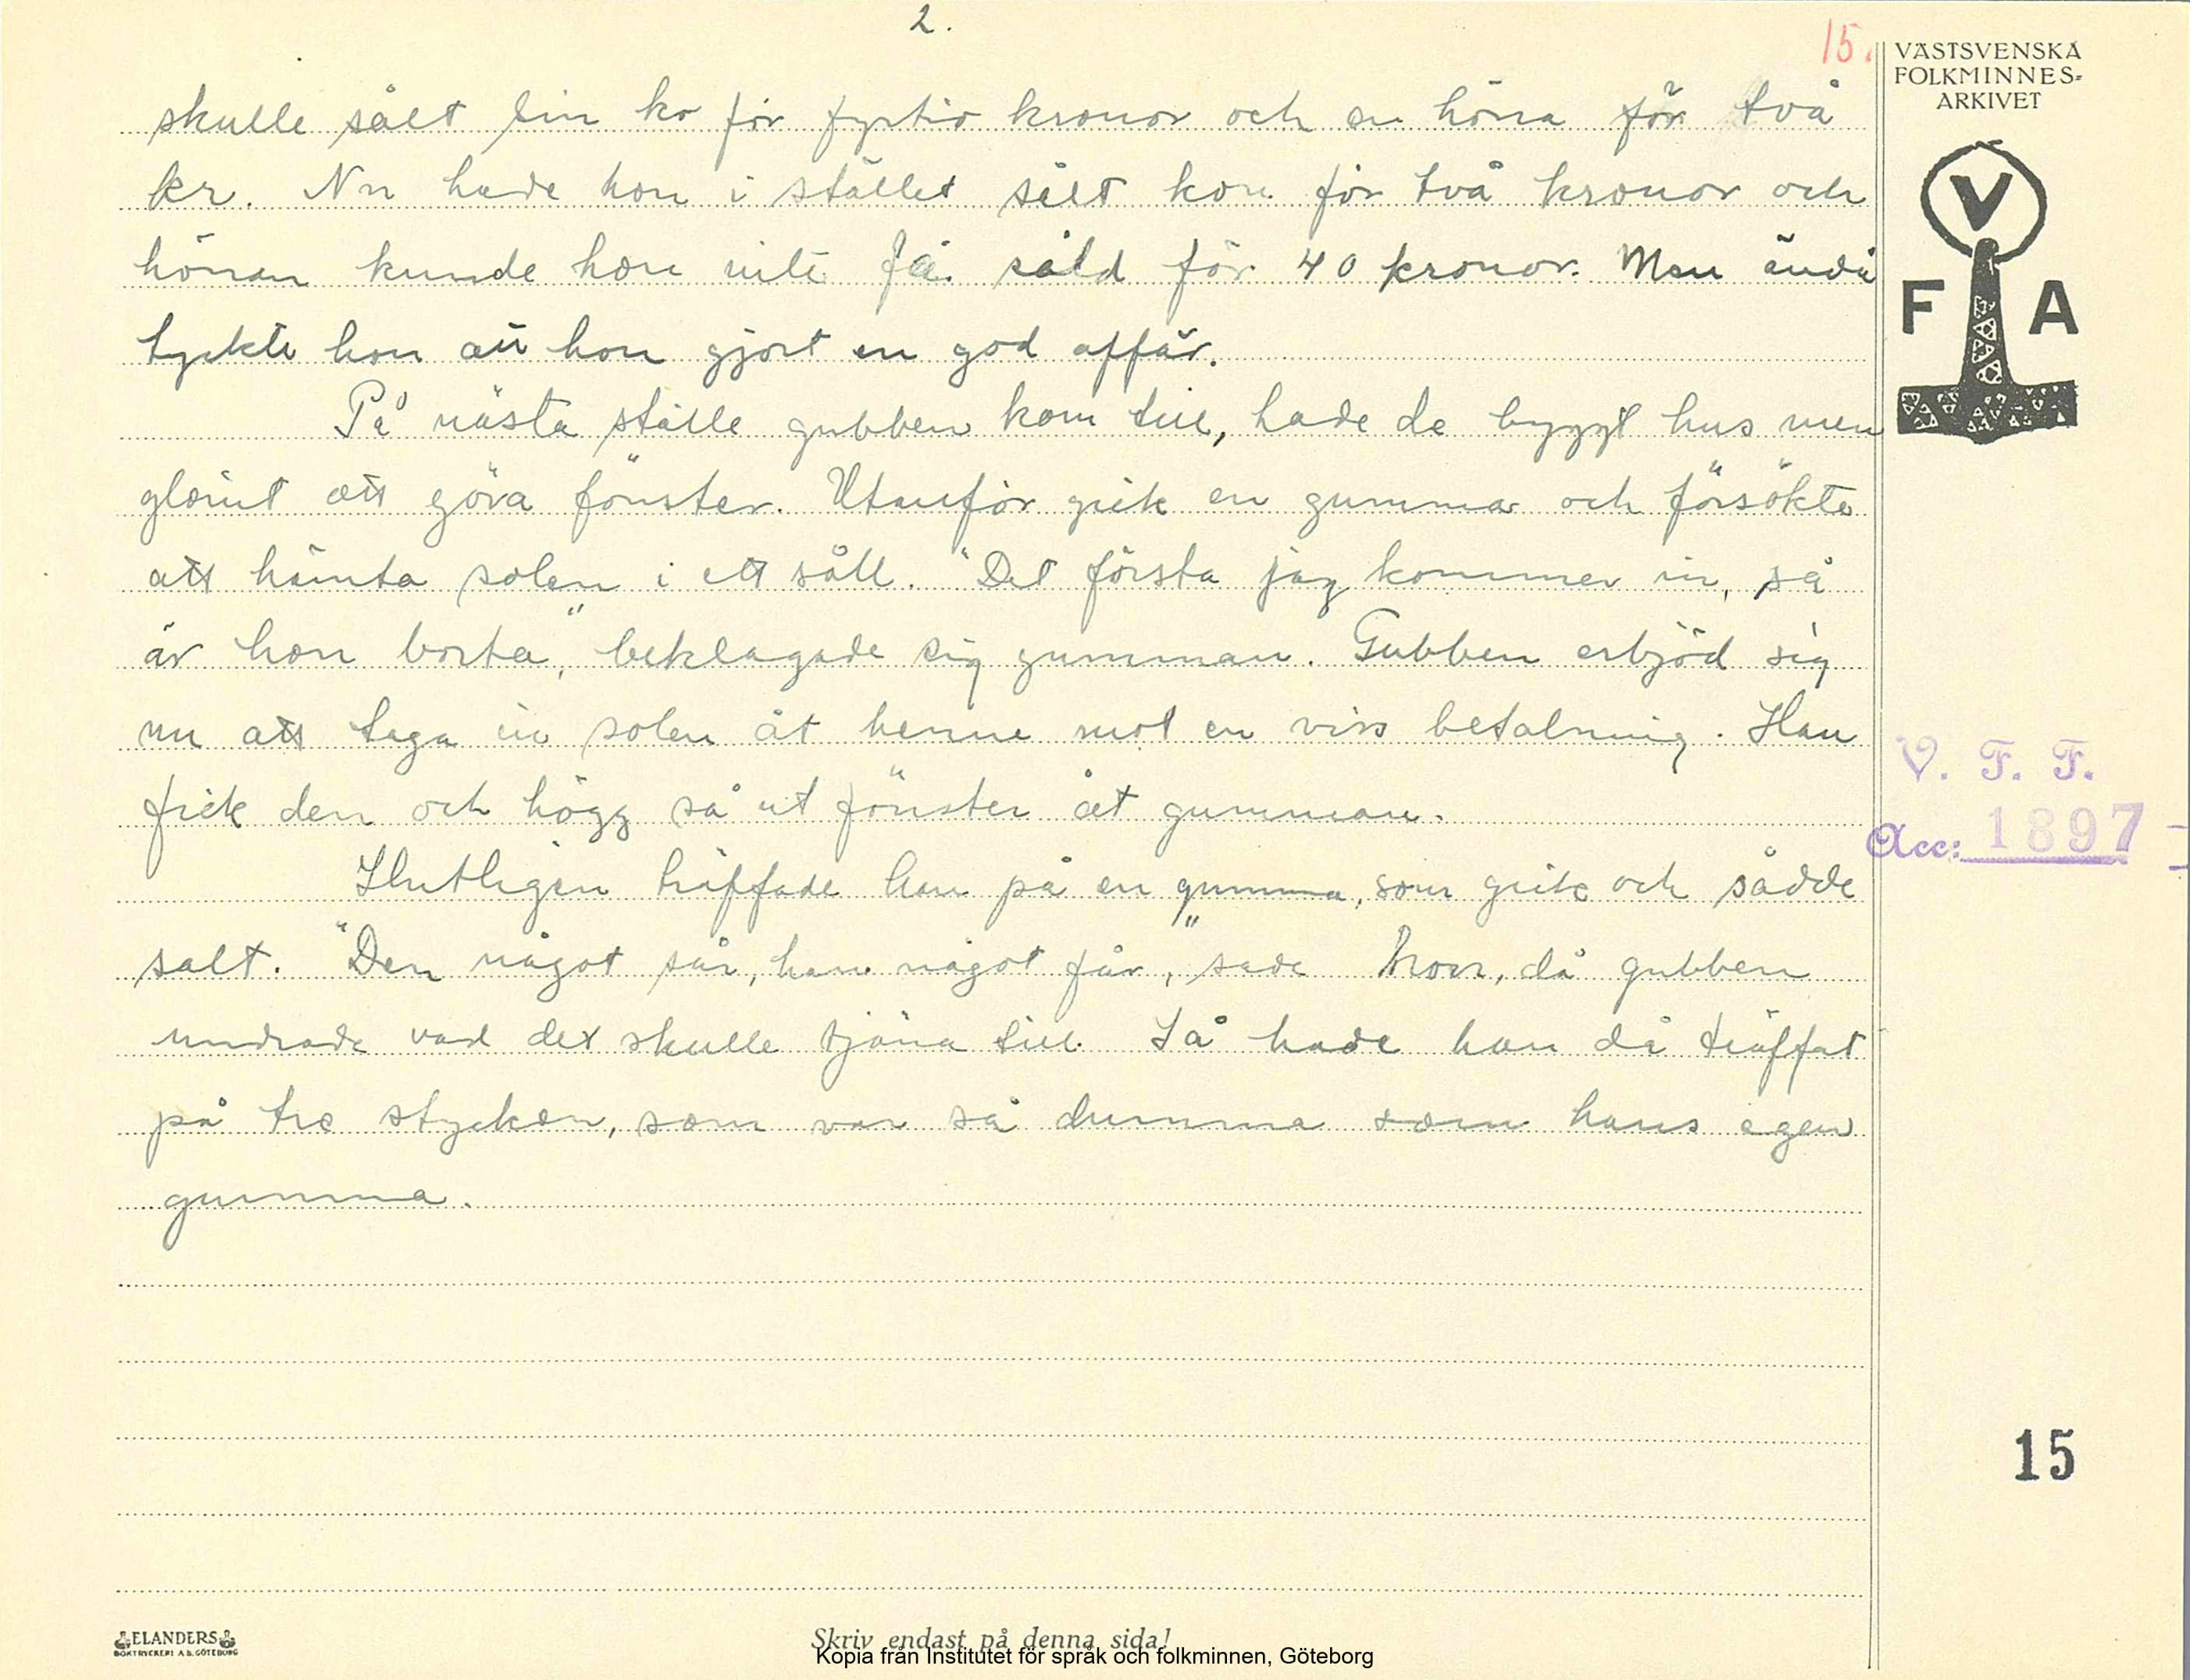 2.
15.
VÄSTSVENSKA
FOLKMINNES-
ARKIVET
V
F A
skulle sålt sin ko för fyrtio kronor och en höna för två
kr. Nu hade hon i stället sålt kon för två kronor och
hönan kunde hon inte få såld för 40 kronor. Men ändå
tyckte hon att hon gjort en god affär.
På nästa ställe gubben kom till, hade de byggt hus men
glömt att göra fönster. Utanför gick en gumma och försökte
att hämta solen i ett såll. "Det första jag kommer in, så
är hon borta," beklagade sig gumman. Gubben erbjöd sig
nu att taga in solen åt henne mot en viss betalning. Han
fick den och högg så ut fönster åt gumman.
Slutligen träffade han på en gumma, som gick och sådde
salt. "Den något sår, han något får," sade hon, då gubben
undrade vad det skulle tjäna till. Så hade han då träffat
på tre stycken, som var så dumma som hans egen
gumma.
V. F. F.
Acc: 1897
15
ELANDERS
BOKTRYCKERI A.B. GÖTEBORG
Skriv endast på denna sida!
Kopia från Institutet för språk och folkminnen, Göteborg